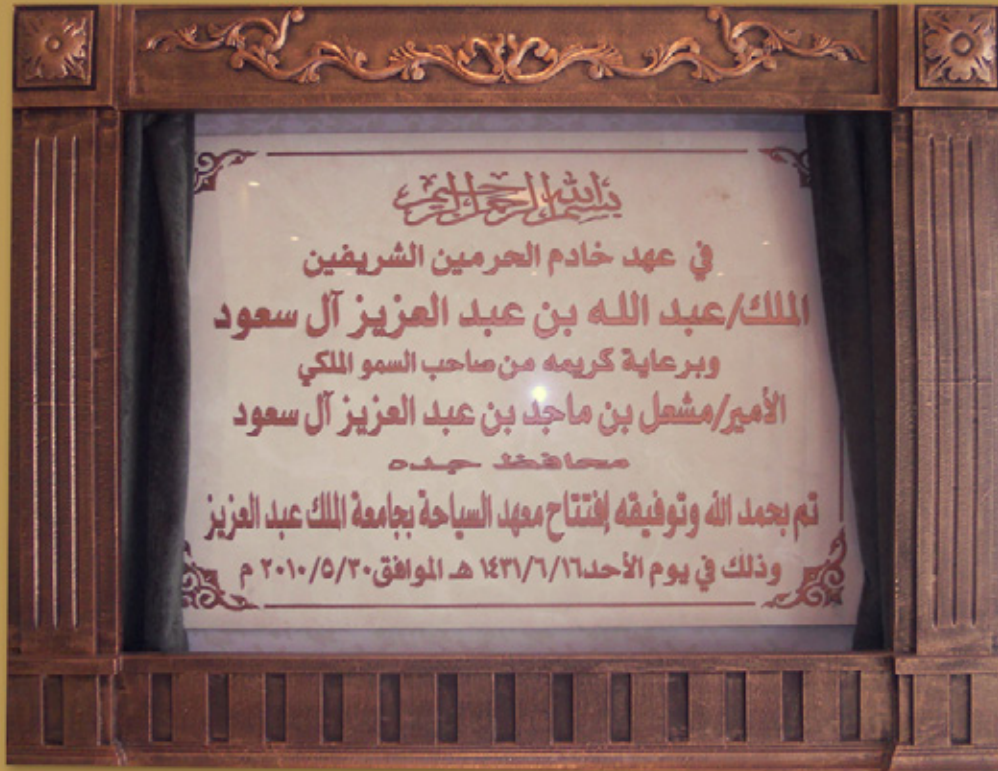 بسم الله الرحمن الرحيم
في عهد خادم الحرمين الشريفين
الملك/عبد الله بن عبد العزيز آل سعود
وبرعاية كريمه من صاحب السمو الملكي
الأمير/مشعل بن ماجد بن عبد العزيز آل سعود
محافظ جده
تم بحمد الله وتوفيقه إفتتاح معهد السياحة بجامعة الملك عبد العزيز
وذلك في يوم الأحد١٤٣١/٦/١٦ هـ الموافق٢٠١٠/٥/٣٠ م